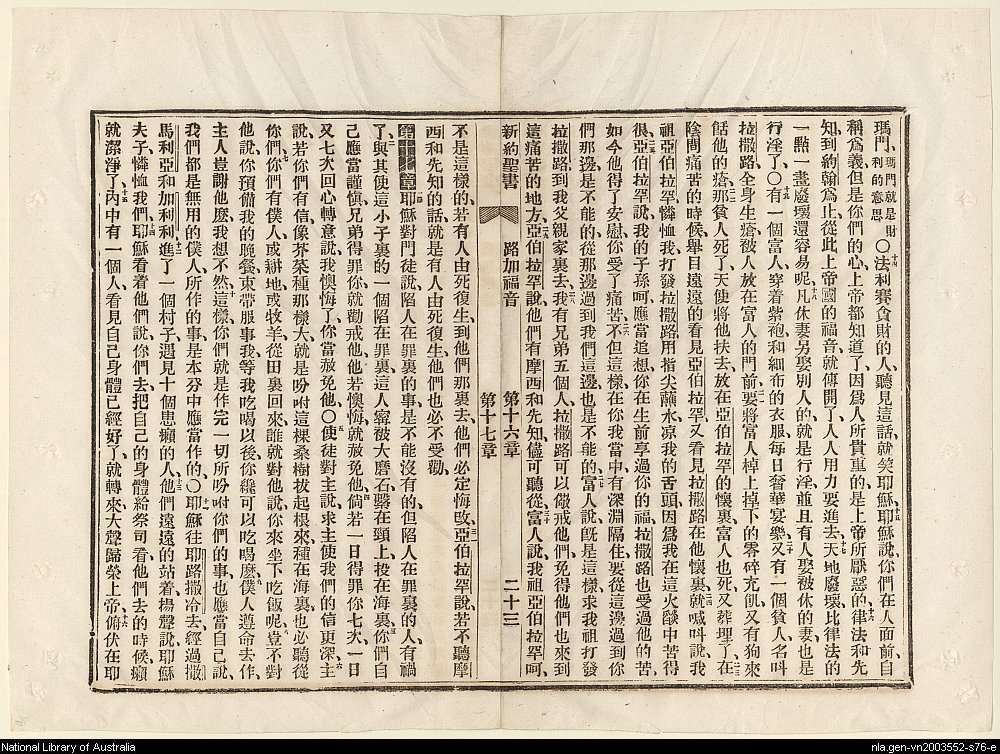 瑪門、瑪門就是財利的意思〇法利賽貪財的人聽見這話就笑耶穌、耶穌說、你們在人面前自
稱爲義但是你們的心上帝都知道了因爲人所貴重的是上帝所厭惡的律法和先
知到約翰爲止從此上帝國的福音就傳開了人人用力要進去天地廢壞比律法的
一點一畫廢壞還容易呢凡休妻另娶別人的就是行淫並且有人娶被休的妻也是
行淫了〇有一個富人穿着紫袍和細布的衣服每日奢華宴樂又有一個貧人名叫
拉撒路全身生瘡被人放在富人的門前要將富人棹上掉下的零碎充飢又有狗來
餂他的瘡那貧人死了天使將他扶去放在亞伯拉罕的懷裏富人也死又葬埋了在
陰間痛苦的時候舉目遠遠的看見亞伯拉罕又看見拉撒路在他懷裏就喊叫說我
祖亞伯拉罕憐恤我打發拉撒路用指尖蘸水凉我的舌頭因爲我在這火燄中苦得
很亞伯拉罕說我的子孫呵應當追想你在生前享過你的福拉撒路也受過他的苦
如今他得了安慰你受了痛苦不但這樣在你我當中有深淵隔住要從這邊過到你
們那邊是不能的從那邊過到我們這邊也是不能的富人說旣是這樣求我祖打發
拉撒路到我父親家裏去我有兄弟五個人拉撒路可以儆戒他們免得他們也來到
這痛苦的地方亞伯拉罕說他們有摩西和先知儘可聽從富人說我祖亞伯拉罕呵
新約聖書 路加福音 第十六章 二十三
第十七章
不是這樣的若有人由死復生到他們那裏去他們必定悔改亞伯拉罕說若不聽摩
西和先知的話就是有人由死復生他們也必不受勸
第十七章耶穌對門徒說陷人在罪裏的事是不能沒有的但陷人在罪裏的人有禍
了與其使這小子裏的一個陷在罪裏這人寧被大磨石繫在頸上投在海裏你們自
己應當謹愼兄弟得罪你就勸戒他他若懊悔就赦免他倘若一日得罪你七次一日
又七次回心轉意說我懊悔了你當赦免他〇使徒對主說求主使我們的信更深主
說若你們有信像芥菜種那樣大就是吩咐這棵桑樹拔起根來種在海裏也必聽從
你們你們有僕人或耕地或牧羊從田裏回來誰就對他說你來坐下吃飯呢豈不對
他說你預備我的晚餐束帶服事我等我吃喝以後你纔可以吃喝麽僕人遵命去作
主人豈謝他麽我想不然這樣你們就是作完一切所吩咐你們的事也應當自己說
我們都是無用的僕人所作的事是本分中應當作的〇耶穌往耶路撒冷去經過撒
馬利亞和加利利進了一個村子遇見十個患癩的人他們遠遠的站着揚聲說耶穌
夫子憐恤我們耶穌看着他們說你們去把自己的身體給祭司看他們去的時候癩
就潔淨了內中有一個人看見自己身體已經好了就轉來大聲歸榮上帝俯伏在耶
National Library of Australia
nla.gen-vn2003552-s76-e